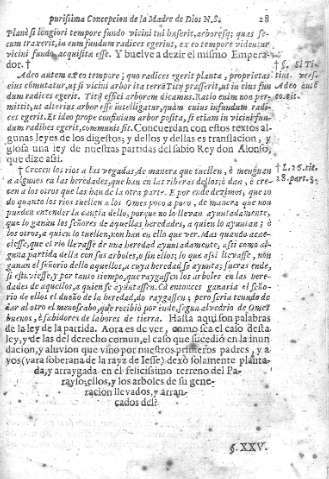 purissima Concepcion de la Madre de Dios N.S. 28
Planè si longiori tempore fundo vicini tui hæserit, arboresq; quas se-
cum traxerit, in eum fundum radices egerint, ex eo tempore videntur
vicini fundo acquisitæ esse. Y buelve a dezir el mismo Empera-
dor. †
Adeo autem ex eo tempore, quo radices egerit planta, proprietas
eius commutatur, ut si vicini arbor ita terrã Titij presserit, ut in eius fun
dum radices egerit. Titij effici arborem dicamus. Ratio enim non per-
mittit, ut alterius arbor esse intelligatur, quàm cuius in fundum radi-
ces egerit. Et ideo prope confinium arbor posita, si etiam in vicini fun-
dum radices egerit, communis fit. Concuerdan con estos textos al-
gunas leyes de los digestos; y dellos y dellas es translacion, y
glosa una ley de nuestras partidas del sabio Rey don Alonso,
que dize assi.
† Crecen los rios a las vegadas, de manera que tuellen, è menguan
a algunos en las heredades, que han en las riberas dellos; è dan, è cre-
cen a los otros que las han de la otra parte. E por ende dezimos, que to
do quanto los rios tuellen a los omes poco a poco, de manera que non
pueden entender la cantia dello, porque no lo llevan ayuntadamente,
que lo ganan los señores de aquellas heredades, a quien lo ayuntan; è
los otros, a quien lo tuellen, non han en ello que ver. Mas quando acae-
ciesse, que el rio llevasse de una heredad ayuntadamente, assi como al-
guna partida della con sus arboles, o sin ellos; lo que assi llevasse, non
ganan el señorio dello aquellos, a cuya heredad se ayunta; fueras ende,
si estuviesse, y por tanto tiempo, que raygassen los arboles en las here-
dades de aquellos, a quien se ayuntassen. Ca entonces ganaria el seño-
rio de ellos el dueño de la heredad, do raygassen; pero seria tenudo de
dar al otro el menoscabo, que recibiò por ende, segun alvedrio de omes
buenos, è sabidores de labores de tierra. Hasta aqui son palabras
de la ley de la partida. Aora es de ver, como sea el caso desta
ley, y de las del derecho comun, el caso que sucediò en la inun
dacion, y aluvion que vino por nuestros primeros padres, y a
vos (vara soberana de la rayz de Iesse) dexò solamente planta-
da, y arraygada en el felicissimo terreno del Pa-
rayso; ellos, y los arboles de su gene-
racion llevados, y arran-
cados del?
§. XXV.
† §. si Ti-
tius versc.
Adeo Cod.
† L. 26. tit.
28. part. 3.